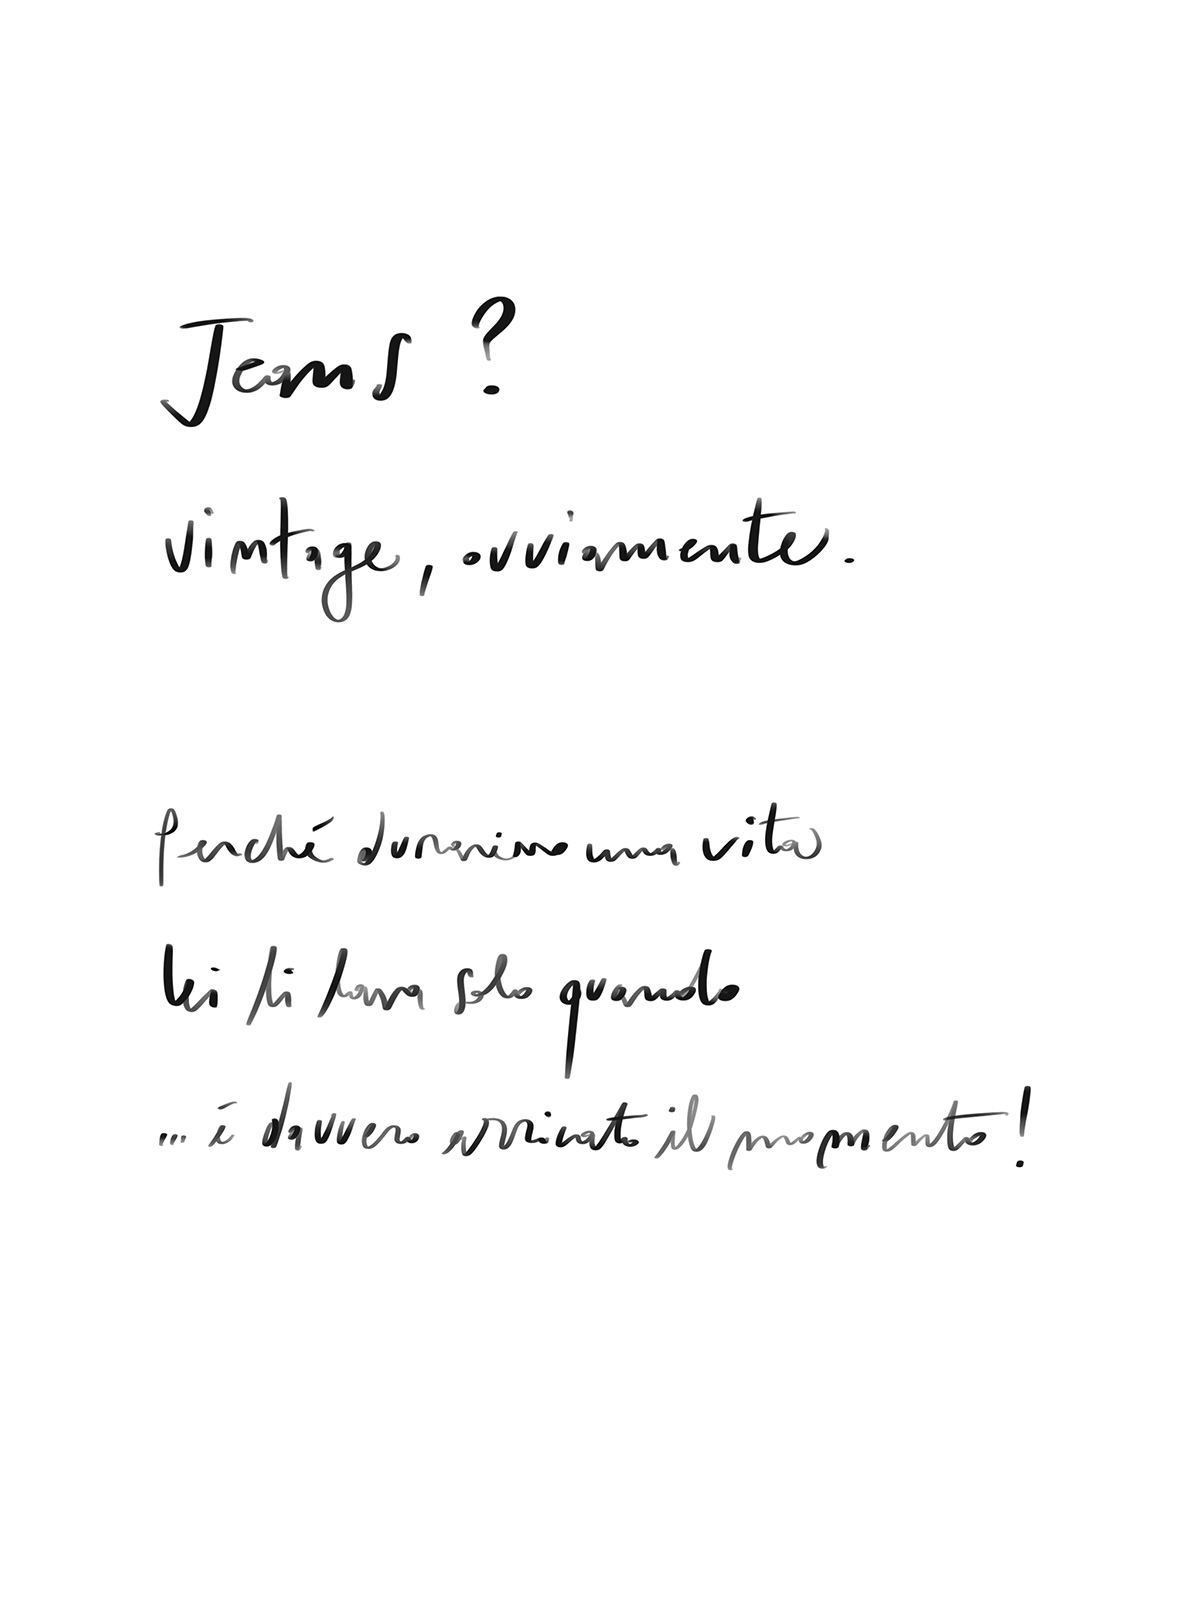 Jeans ?
vintage, ovviamente.
Perché durarino una vita
lei li lava solo quando
... é davvero arrivato il momento!